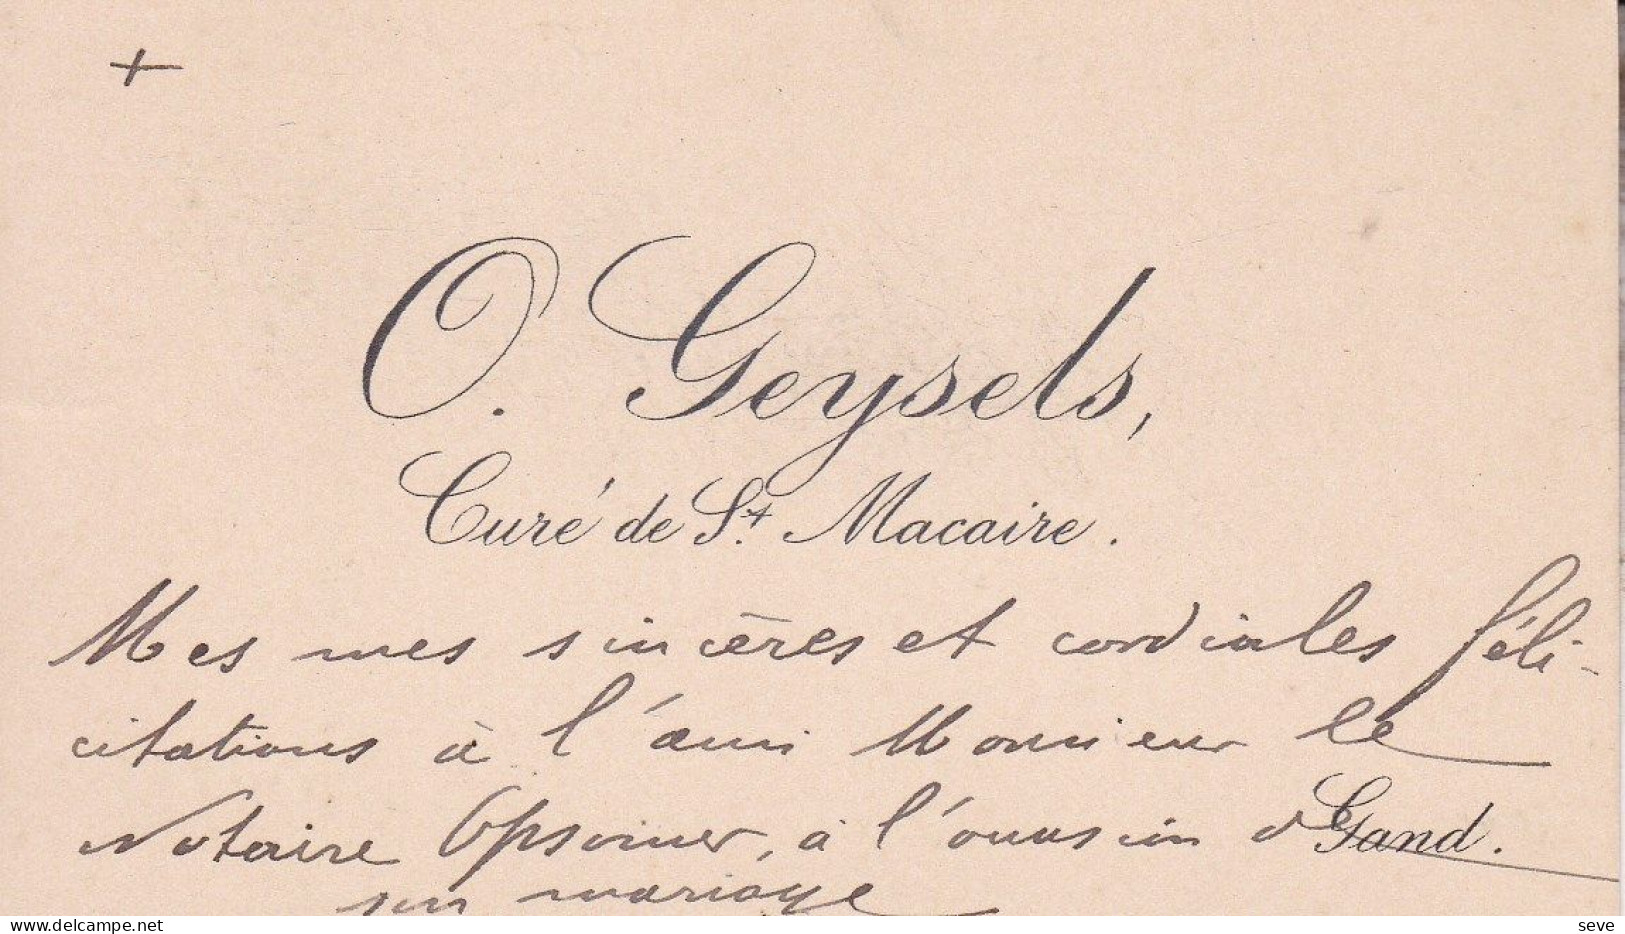 +
O. Geysels,
Curé de St. Macaire.
Mes mes sincères et cordiales féli-
citations à l'ami Monsieur le
Notaire Opsomer, à l'occasion de
Gand.
son mariage
www.delcampe.net
seve